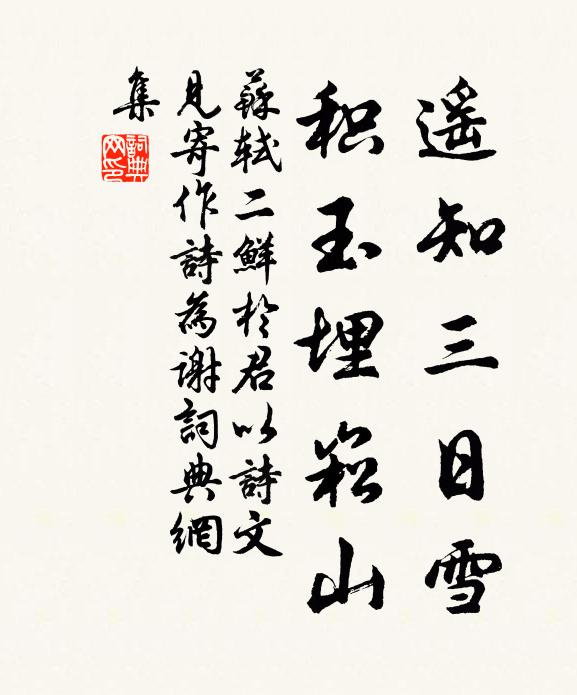 遥知三日雪
积玉埋崧山
蘇軾二鮮於君以詩文
見寄作詩為謝詞典網
集
詞典
网印